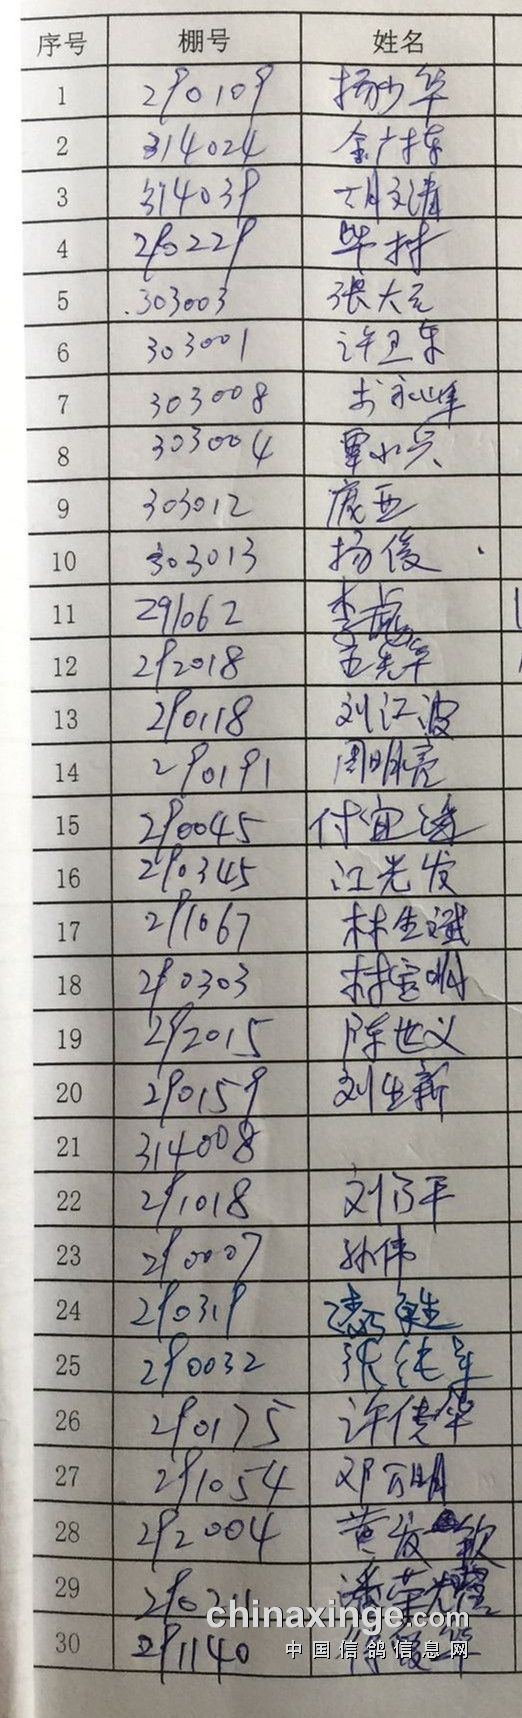 序号 棚号 姓名
1 290109 杨少华
2 314024 金广林
3 314039 胡文清
4 290229 毕村
5 303003 张大元
6 303001 许卫东
7 303008
8 303004 覃小兴
9 303012 庞亚
10 303013 杨俊
11 291062 李
12 292018 王先华
13 290118 刘江波
14 290191 周明亮
15 290045 付宜海
16 290345 江光发
17 291067 林生斌
18 290303 林宝明
19 292015 陈世义
20 290159 刘生新
21 314008
22 291018 刘乃平
23 290007 孙伟
24 290319
25 290032 张纯军
26 290175 许传华
27 291054 邓万明
28 292004 黄发钦
29 290211 潘荣耀
30 291140 华
chinaxinge.com
中国信鸽信息网